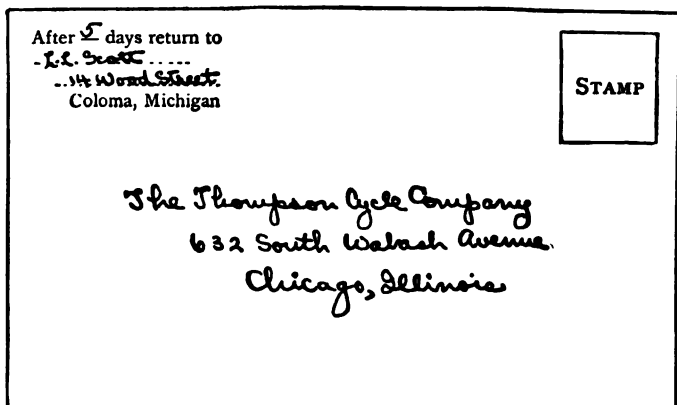 After 5 days return to
L.L. Scott
14 Wood Street.
Coloma, Michigan
STAMP
The Thompson Cycle Company
632 South Wabash Avenue.
Chicago, Illinois